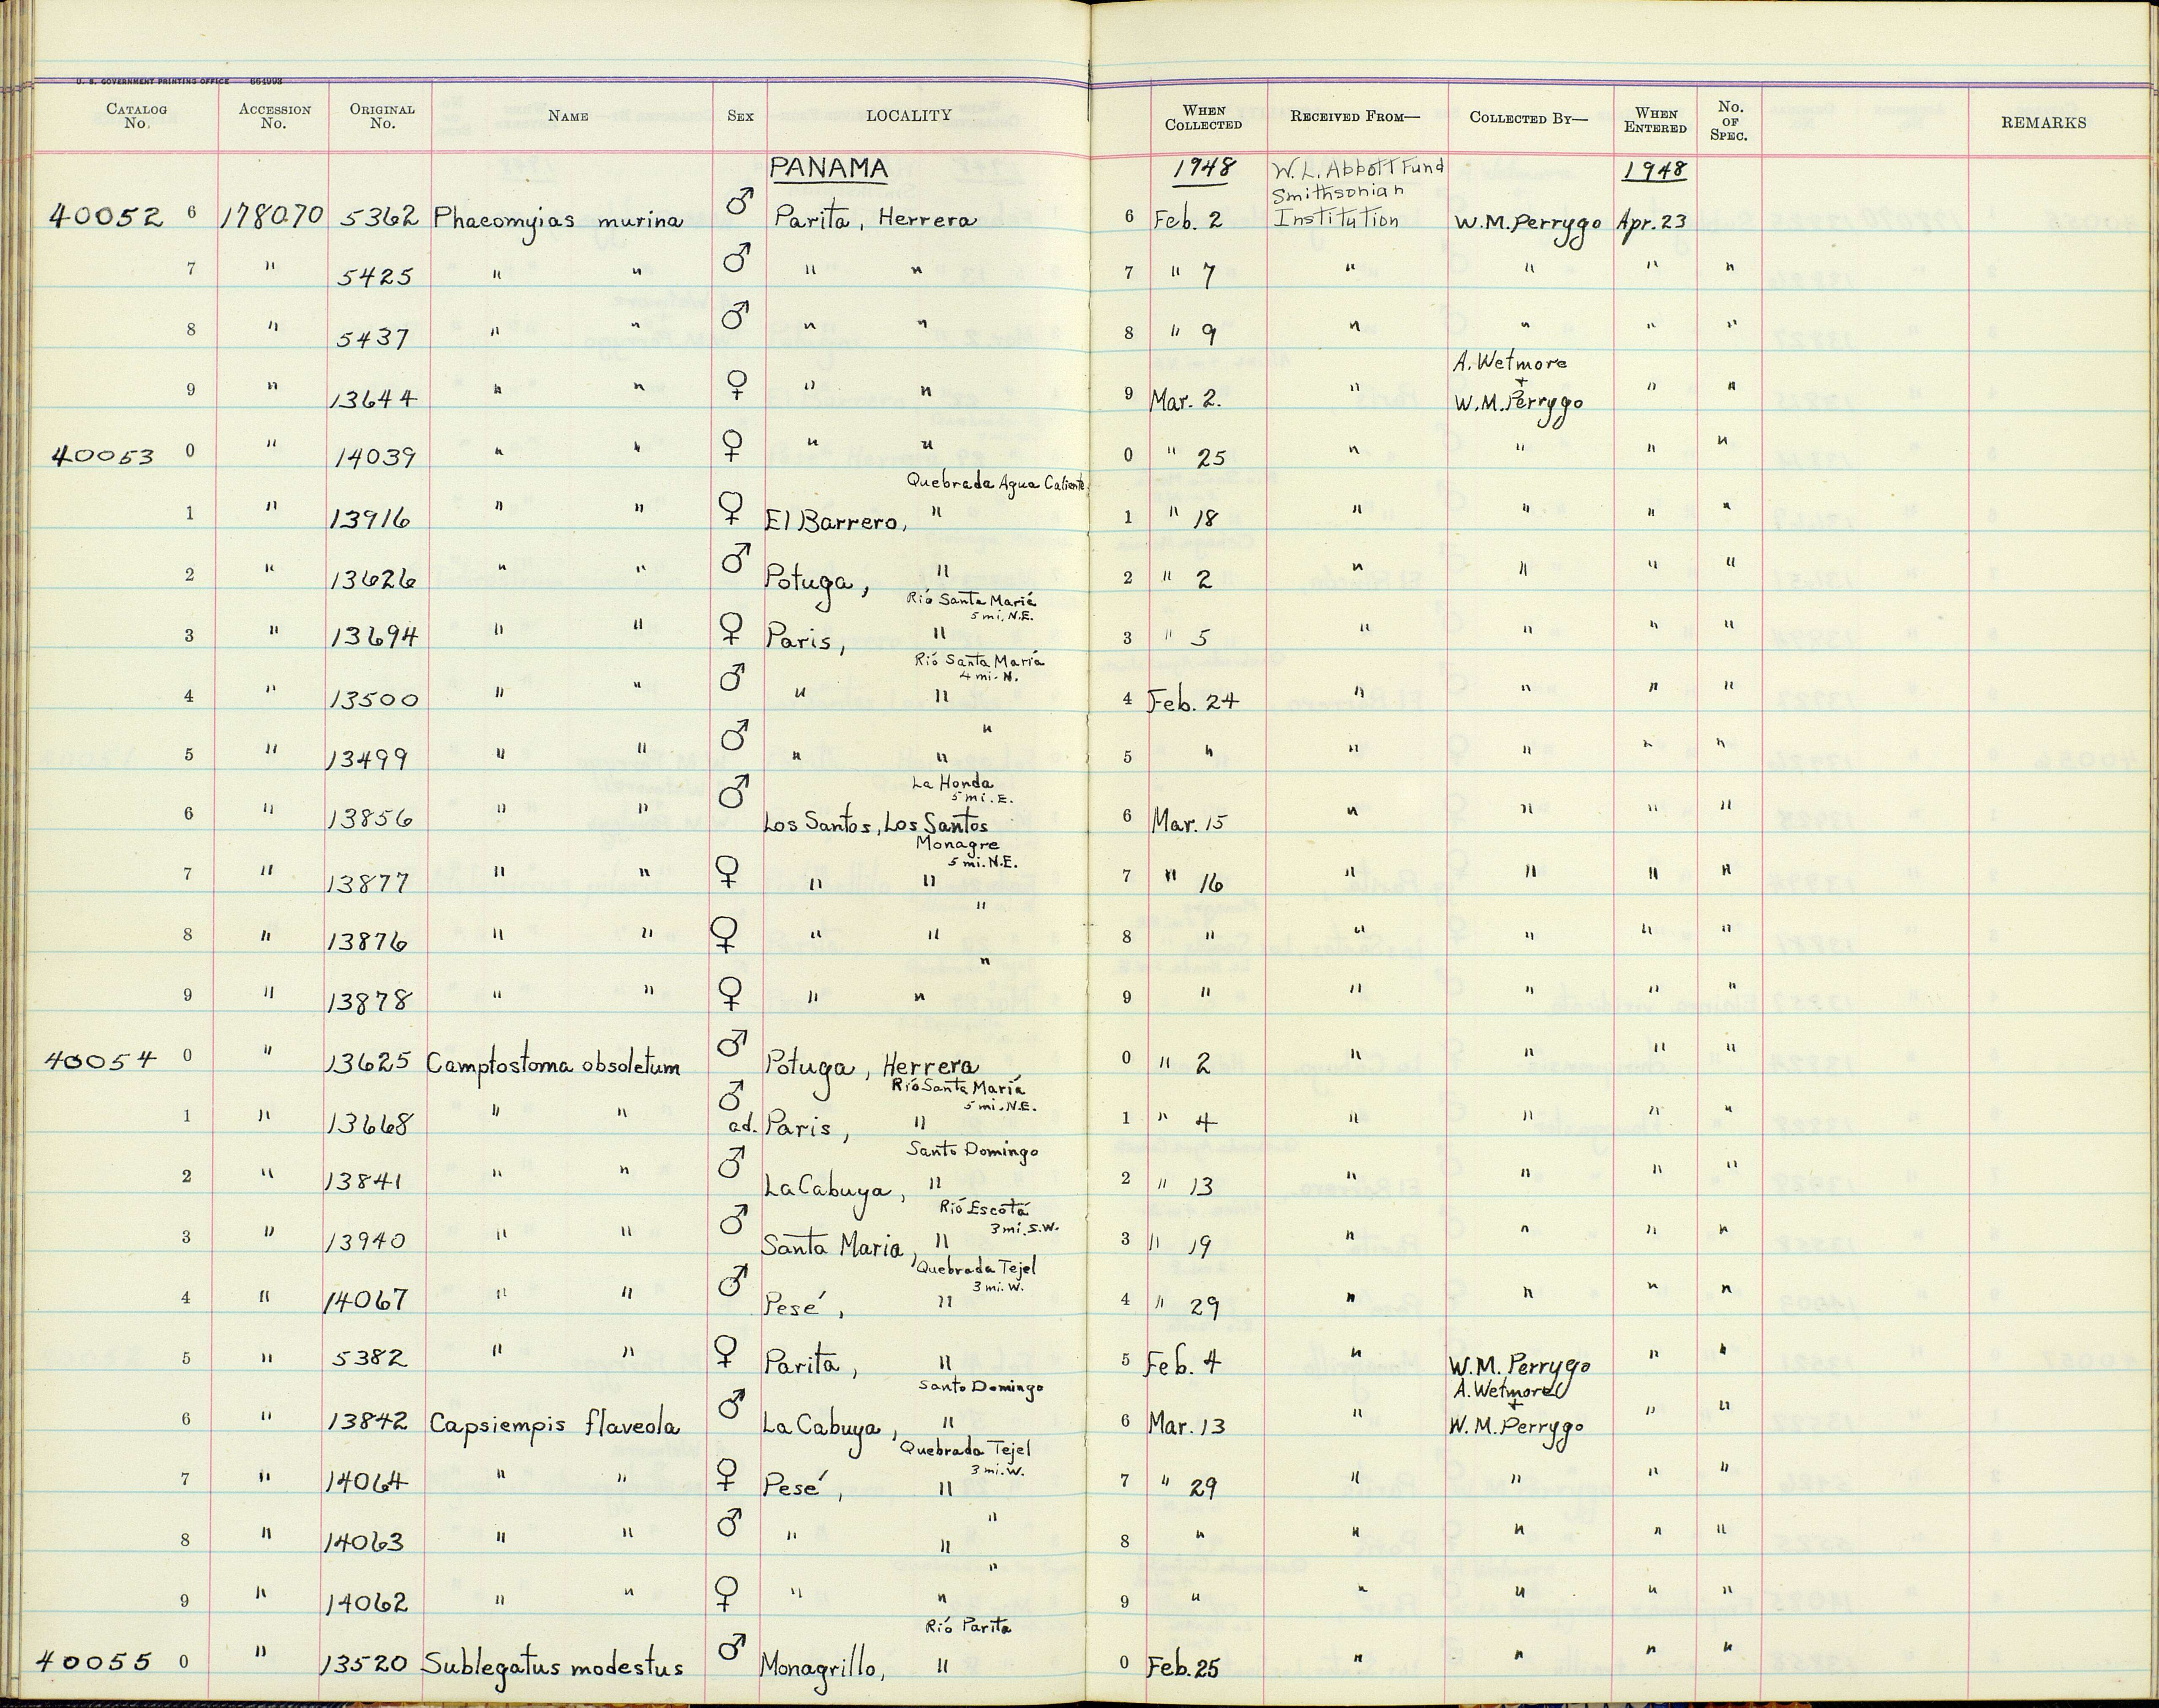 U. S. GOVERNMENT PRINTING OFFICE 664998
CATALOG No. ACCESSION No. ORIGINAL No. NAME SEX LOCALITY WHEN COLLECTED RECEIVED FROM— COLLECTED BY— WHEN ENTERED No. OF SPEC. REMARKS
PANAMA 1948 W. L. Abbott Fund 1948
Smithsonian
40052 6 178070 5362 Phaeomyias murina ♂ Parita, Herrera 6 Feb. 2 Institution W.M. Perrygo Apr. 23
7 " 5425 " " ♂ " " 7 " 7 " " " "
8 " 5437 " " ♂ " " 8 " 9 " " " "
A. Wetmore
+
9 " 13644 " " ♀ " " 9 Mar. 2. " W.M. Perrygo " "
40053 0 " 14039 " " ♀ " " 0 " 25 " " " "
Quebrada Agua Caliente
1 " 13916 " " ♀ El Barrero, " 1 " 18 " " " "
2 " 13626 " " ♂ Potuga, " 2 " 2 " " " "
Río Santa María
5 mi. N.E.
3 " 13694 " " ♀ Paris, " 3 " 5 " " " "
Río Santa María
4 mi. N.
4 " 13500 " " ♂ " " 4 Feb. 24 " " " "
"
5 " 13499 " " ♂ " " 5 " " " " "
La Honda
5 mi. E.
6 " 13856 " " ♂ Los Santos, Los Santos 6 Mar. 15 " " " "
Monagre
5 mi. N.E.
7 " 13877 " " ♀ " " 7 " 16 " " " "
"
8 " 13876 " " ♀ " " 8 " " " " "
"
9 " 13878 " " ♀ " " 9 " " " " "
40054 0 " 13625 Camptostoma obsoletum ♂ Potuga, Herrera 0 " 2 " " " "
Río Santa María
5 mi. N.E.
1 " 13668 " " ♂ ad. Paris, " 1 " 4 " " " "
Santo Domingo
2 " 13841 " " ♂ La Cabuya, " 2 " 13 " " " "
Río Escotá
3 mi. S.W.
3 " 13940 " " ♂ Santa Maria, " 3 " 19 " " " "
Quebrada Tejel
3 mi. W.
4 " 14067 " " ♂ Pesé, " 4 " 29 " " " "
5 " 5382 " " ♀ Parita, " 5 Feb. 4 " W.M. Perrygo " "
Santo Domingo A. Wetmore
+
6 " 13842 Capsiempis flaveola ♂ La Cabuya, " 6 Mar. 13 " W.M. Perrygo " "
Quebrada Tejel
3 mi. W.
7 " 14064 " " ♀ Pesé, " 7 " 29 " " " "
"
8 " 14063 " " ♂ " " 8 " " " " "
"
9 " 14062 " " ♀ " " 9 " " " " "
Río Parita
40055 0 " 13520 Sublegatus modestus ♂ Monagrillo, " 0 Feb. 25 " " " "